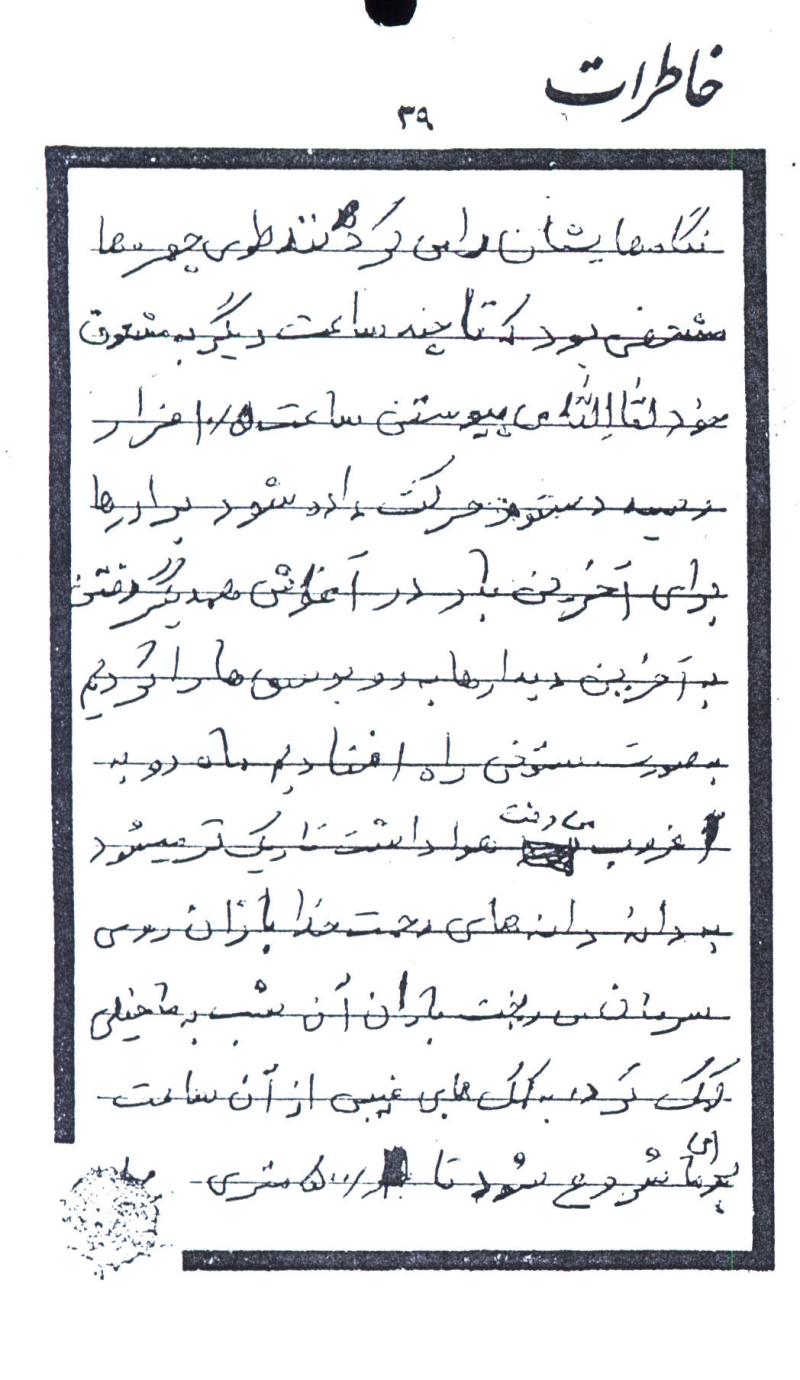 خاطرات
۳۹
نگاهایشان را می کردند طوی چهره ها
مشخص بود که تا چند ساعت دیگر به معشوق
خود لقاالله می پیوستن ساعت ۱۰/۵ فرار
رسید دستور حرکت داده شود برادرها
برای آخرین بار در آغوش همدیگر رفتن
به آخرین دیدارها به رو بوسی ها را کردیم
به صورت ستونی راه افتادیم ماه رو به
غروب می رفت هوا داشت تاریک تر میشود
به دانه دانه های رحمت خدا باران روی
سرمان می ریخت باران آن شب به ما خیلی
کمک کرد به کمک های غیبی از آن ساعت
برای ما شروع شود تا ۵۰۰ متری